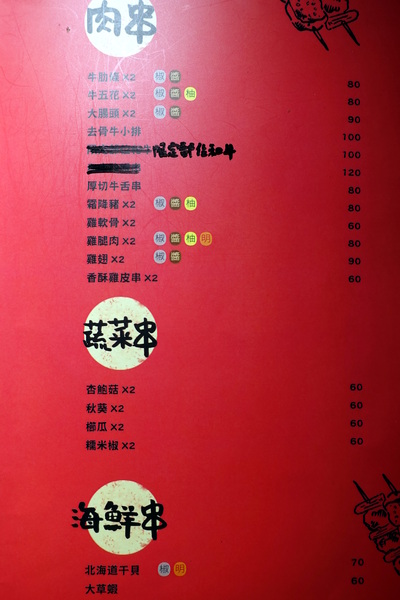 肉串
牛肋條 X2 椒 醬 80
牛五花 X2 椒 醬 柚 80
大腸頭 X2 椒 醬 90
去骨牛小排 100
限定 和牛 100
120
厚切牛舌串 80
霜降豬 X2 椒 醬 柚 80
雞軟骨 X2 60
雞腿肉 X2 椒 醬 柚 明 80
雞翅 X2 椒 醬 90
香酥雞皮串 X2 60
蔬菜串
杏鮑菇 X2 60
秋葵 X2 60
櫛瓜 X2 60
糯米椒 X2 60
海鮮串
北海道干貝 椒 明 70
大草蝦 60